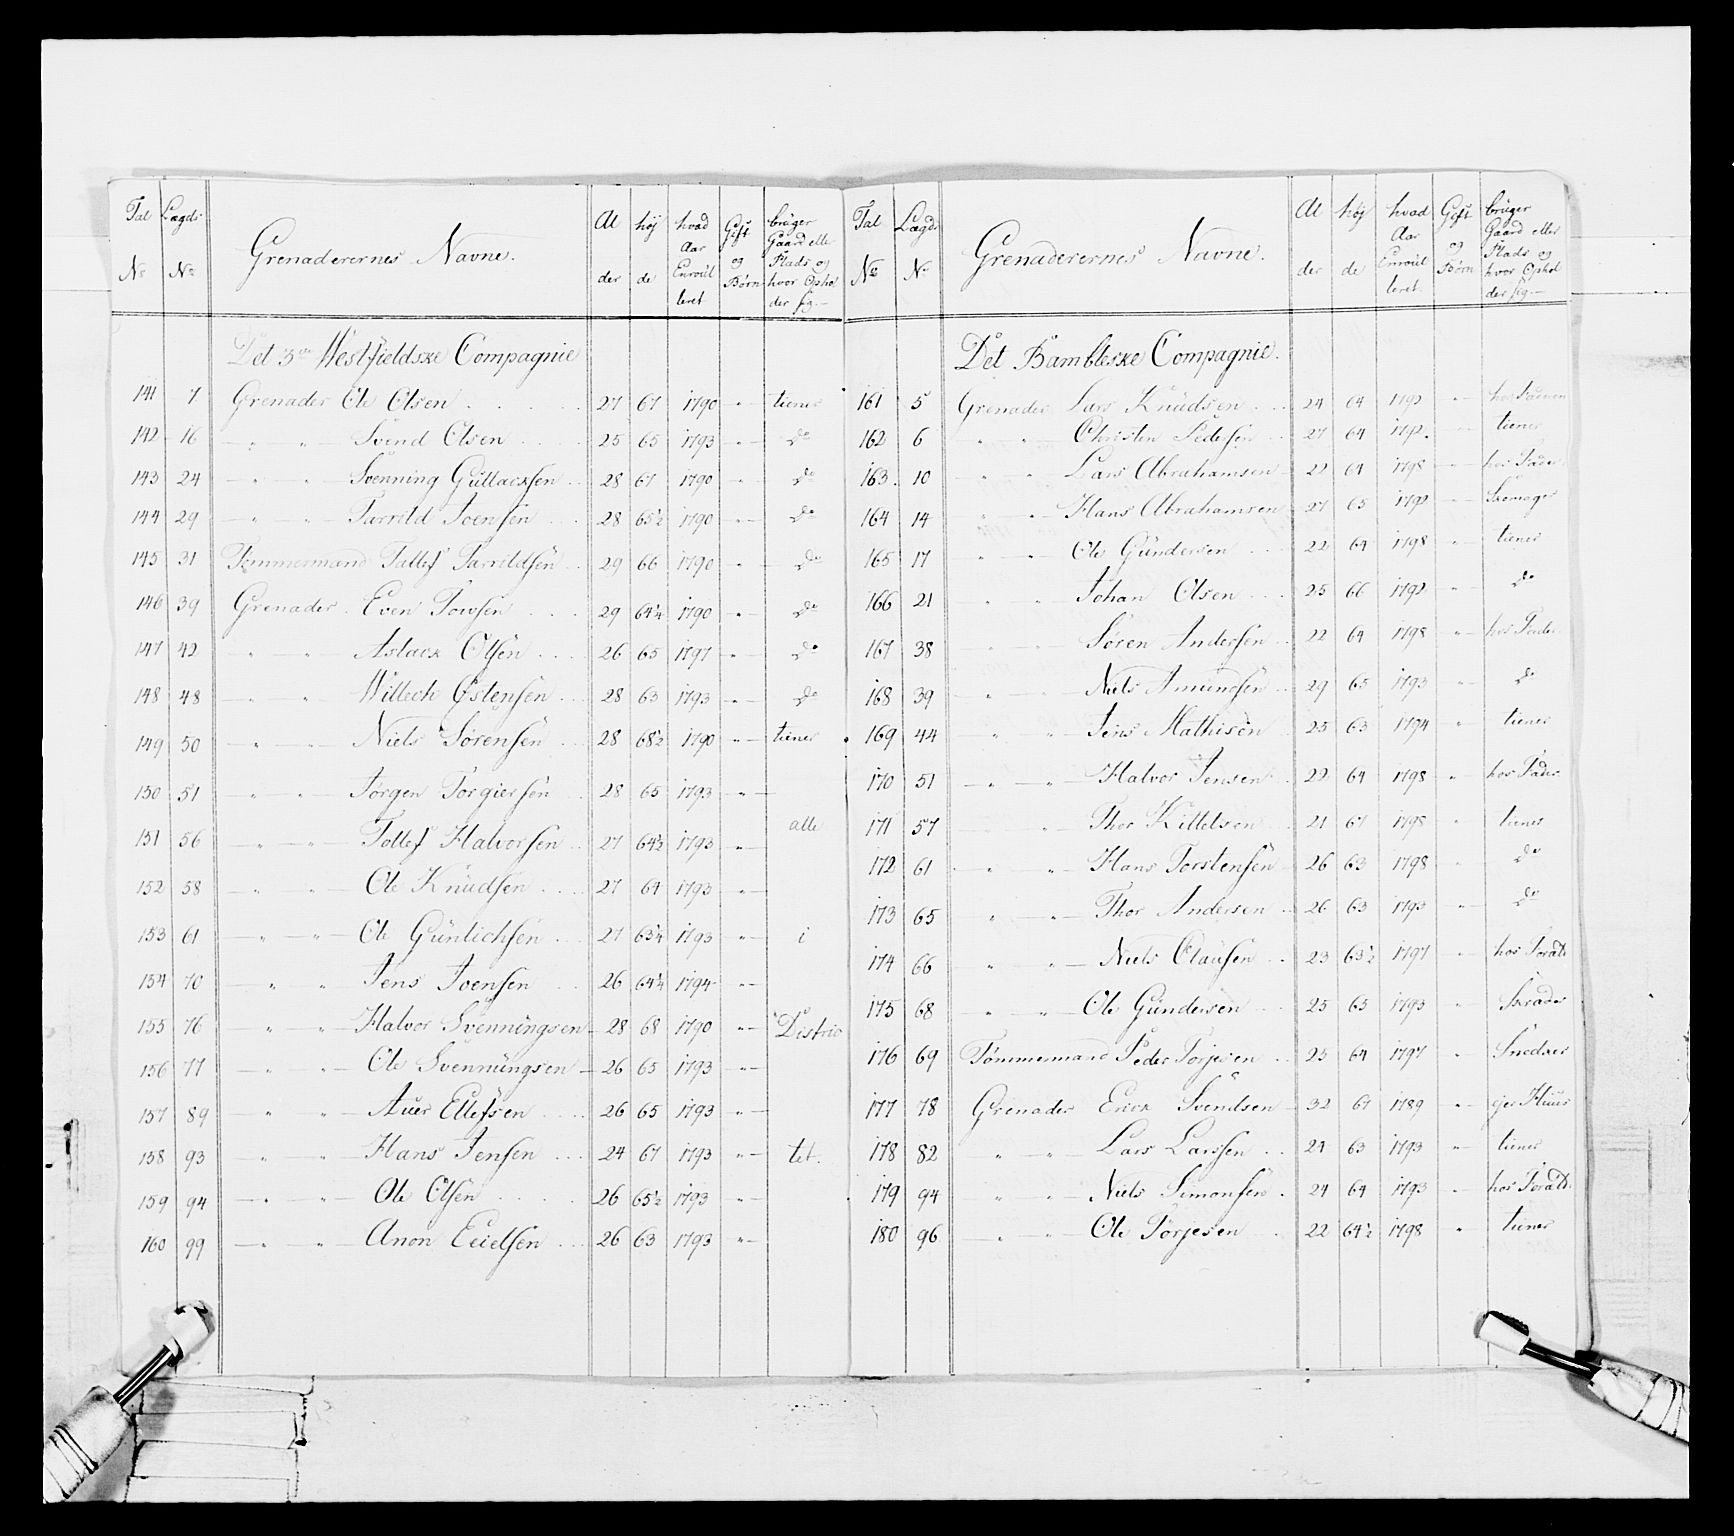 Tal No Lægds No Grenaderernes Navne. Alder højde hvad Aar Enroulleret Gift og Børn bruger Gaard eller Plads og hvor Opholder sig.—
Det 3de Westfieldske Compagnie
141 7 Grenader Ole Olsen 27 67 1790 " tiener
142 16 " " Svend Olsen 25 65 1793 " do
143 24 " " Svenning Gullacksen 28 67 1790 " do
144 29 " " Tarrild Joensen 28 65½ 1790 " do
145 31 Tømmermand Tallef Tarrildsen 29 66 1790 " do
146 39 Grenader Even 29 64¼ 1790 " do
147 42 " " Aslack Olsen 26 65 1797 " do
148 48 " " Willech Østensen 28 63 1793 " do
149 50 " " Niels Sørensen 28 68½ 1790 " tiener
150 51 " " Jørgen Torgiersen 28 65 1793 "
151 56 " " Tollef Halvorsen 27 64½ 1793 " alle
152 58 " " Ole Knudsen 27 64 1793 "
153 61 " " Ole Günlichsen 27 63¼ 1793 " i
154 70 " " Jens Joensen 26 64¼ 1794 "
155 76 " " Halvor Svenningsen 28 68 1790 " Distric
156 77 " " Ole Svenningsen 26 65 1793 "
157 89 " " Auer Ellefsen 26 65 1793 "
158 93 " " Hans Jensen 24 67 1793 " tet.
159 94 " " Ole Olsen 26 65½ 1793 "
160 99 " " Anon Eielsen 26 63 1793 "
Tal No Lægds No Grenaderernes Navne. Alder højde hvad Aar Enroulleret Gift og Børn bruger Gaard eller Plads og hvor Opholder sig.—
Det Bambleske Compagnie.
161 5 Grenader Lars Knudsen 24 64 1792 "
162 6 " " Christen Pedersen 27 64 1792. tiener
163 10 " " Lars Abrahamsen 22 64 1798 " hos Fader
164 14 " " Hans Abrahamsen 27 65 1792 " Skomager
165 17 " " Ole Gundersen 22 64 1798 " tiener
166 21 " " Johan Olsen 25 66 1792 " do
167 38 " " Søren Andersen 22 64 1798 " hos Fader
168 39 " " Niels Amundsen 29 65 1793 " do
169 44 " " Jens Mathisen 25 63 1794 " tiener
170 51 " " Halvor Jensen 22 64 1798 " hos Fader
171 57 " Thor Kittelsen 21 67 1798 " tiener
172 61 " " Hans Torstensen 26 63 1798 " do
173 65 " " Thor Andersen 26 63 1793 " do
174 66 " " Niels Clausen 23 63½ 1797 " hos Foræld
175 68 " " Ole Gundersen 25 65 1793 " Skræder
176 69 Tømmermand Peder Torjesen 25 64 1797 " Snedker
177 78 Grenader Erick Svendsen 32 67 1789 " ejer Huus
178 82 " " Lars Larssen 24 63 1793 " tiener
179 94 " " Niels Simonsen 24 64 1793 " hos Foræld.
180 96 " " Ole Torjesen 22 64½ 1798 " tiener